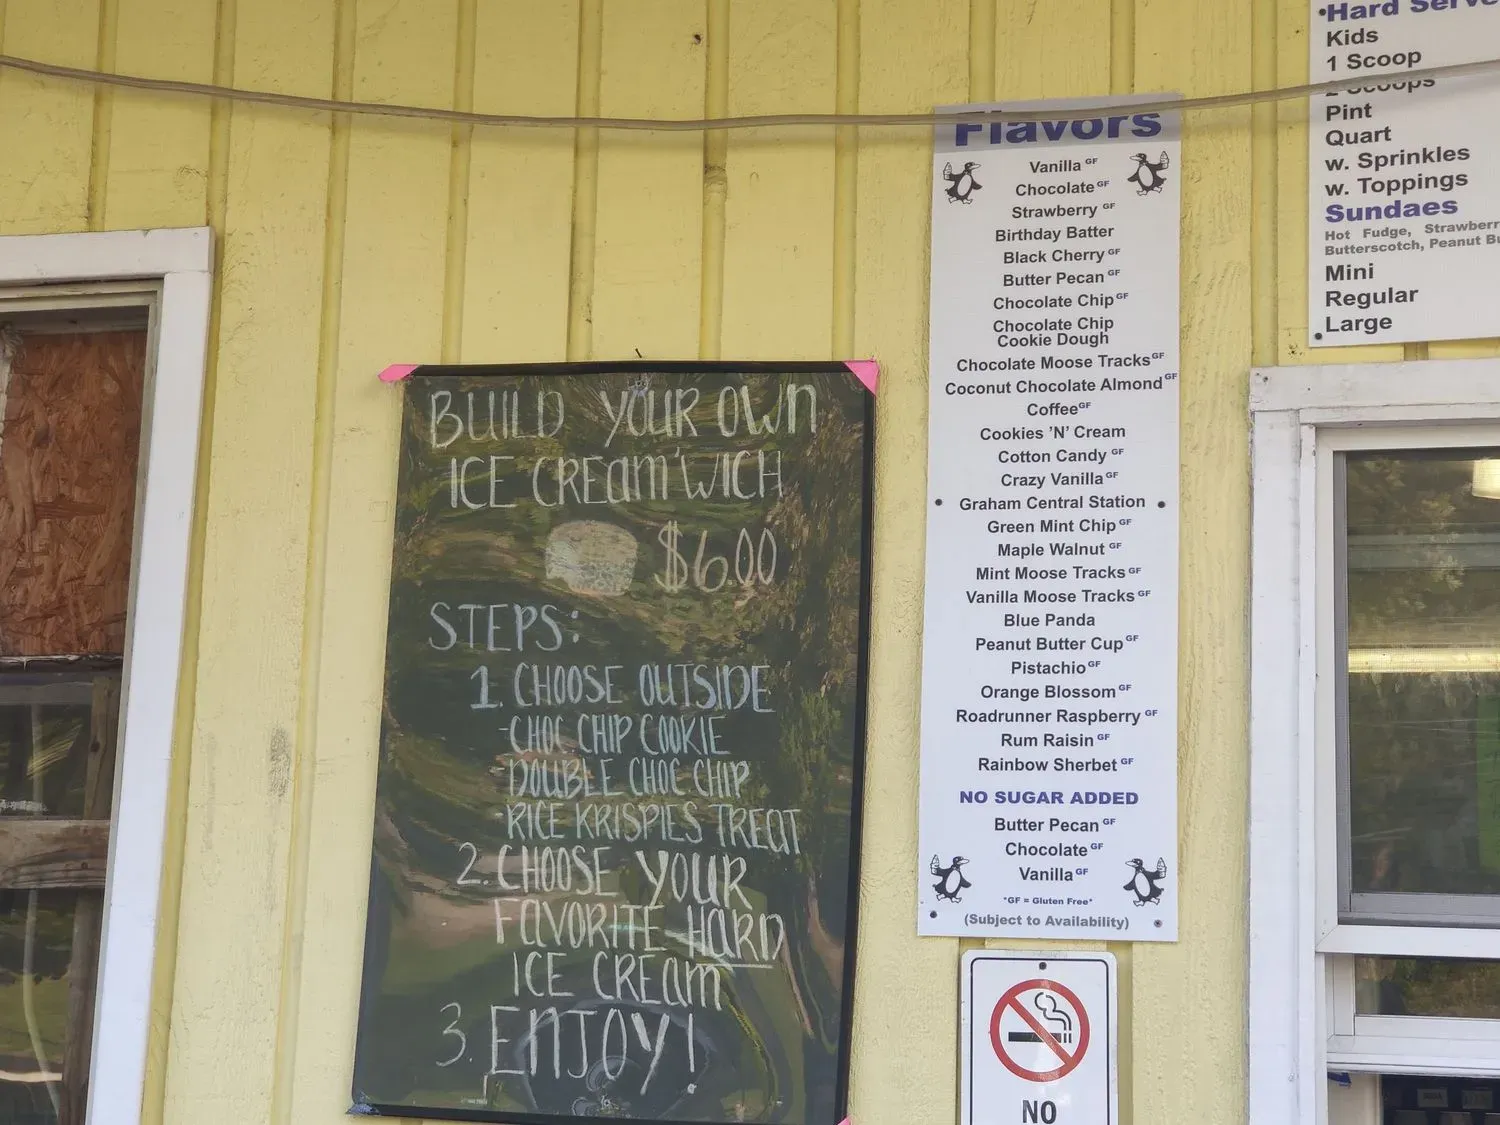 BUILD YOUR OWN
ICE CREAM'WICH
$6.00
STEPS:
1. CHOOSE OUTSIDE
-CHOC CHIP COOKIE
-DOUBLE CHOC CHIP
-RICE KRISPIES TREAT
2. CHOOSE YOUR
FAVORITE HARD
ICE CREAM
3. ENJOY!
Flavors
Vanilla GF
Chocolate GF
Strawberry GF
Birthday Batter
Black Cherry GF
Butter Pecan GF
Chocolate Chip GF
Chocolate Chip
Cookie Dough
Chocolate Moose Tracks GF
Coconut Chocolate Almond GF
Coffee GF
Cookies 'N' Cream
Cotton Candy GF
Crazy Vanilla GF
Graham Central Station
Green Mint Chip GF
Maple Walnut GF
Mint Moose Tracks GF
Vanilla Moose Tracks GF
Blue Panda
Peanut Butter Cup GF
Pistachio GF
Orange Blossom GF
Roadrunner Raspberry GF
Rum Raisin GF
Rainbow Sherbet GF
NO SUGAR ADDED
Butter Pecan GF
Chocolate GF
Vanilla GF
*GF = Gluten Free*
(Subject to Availability)
NO
Hard Serve
Kids
1 Scoop
2 Scoops
Pint
Quart
w. Sprinkles
w. Toppings
Sundaes
Hot Fudge, Strawberr
Butterscotch, Peanut Bu
Mini
Regular
Large